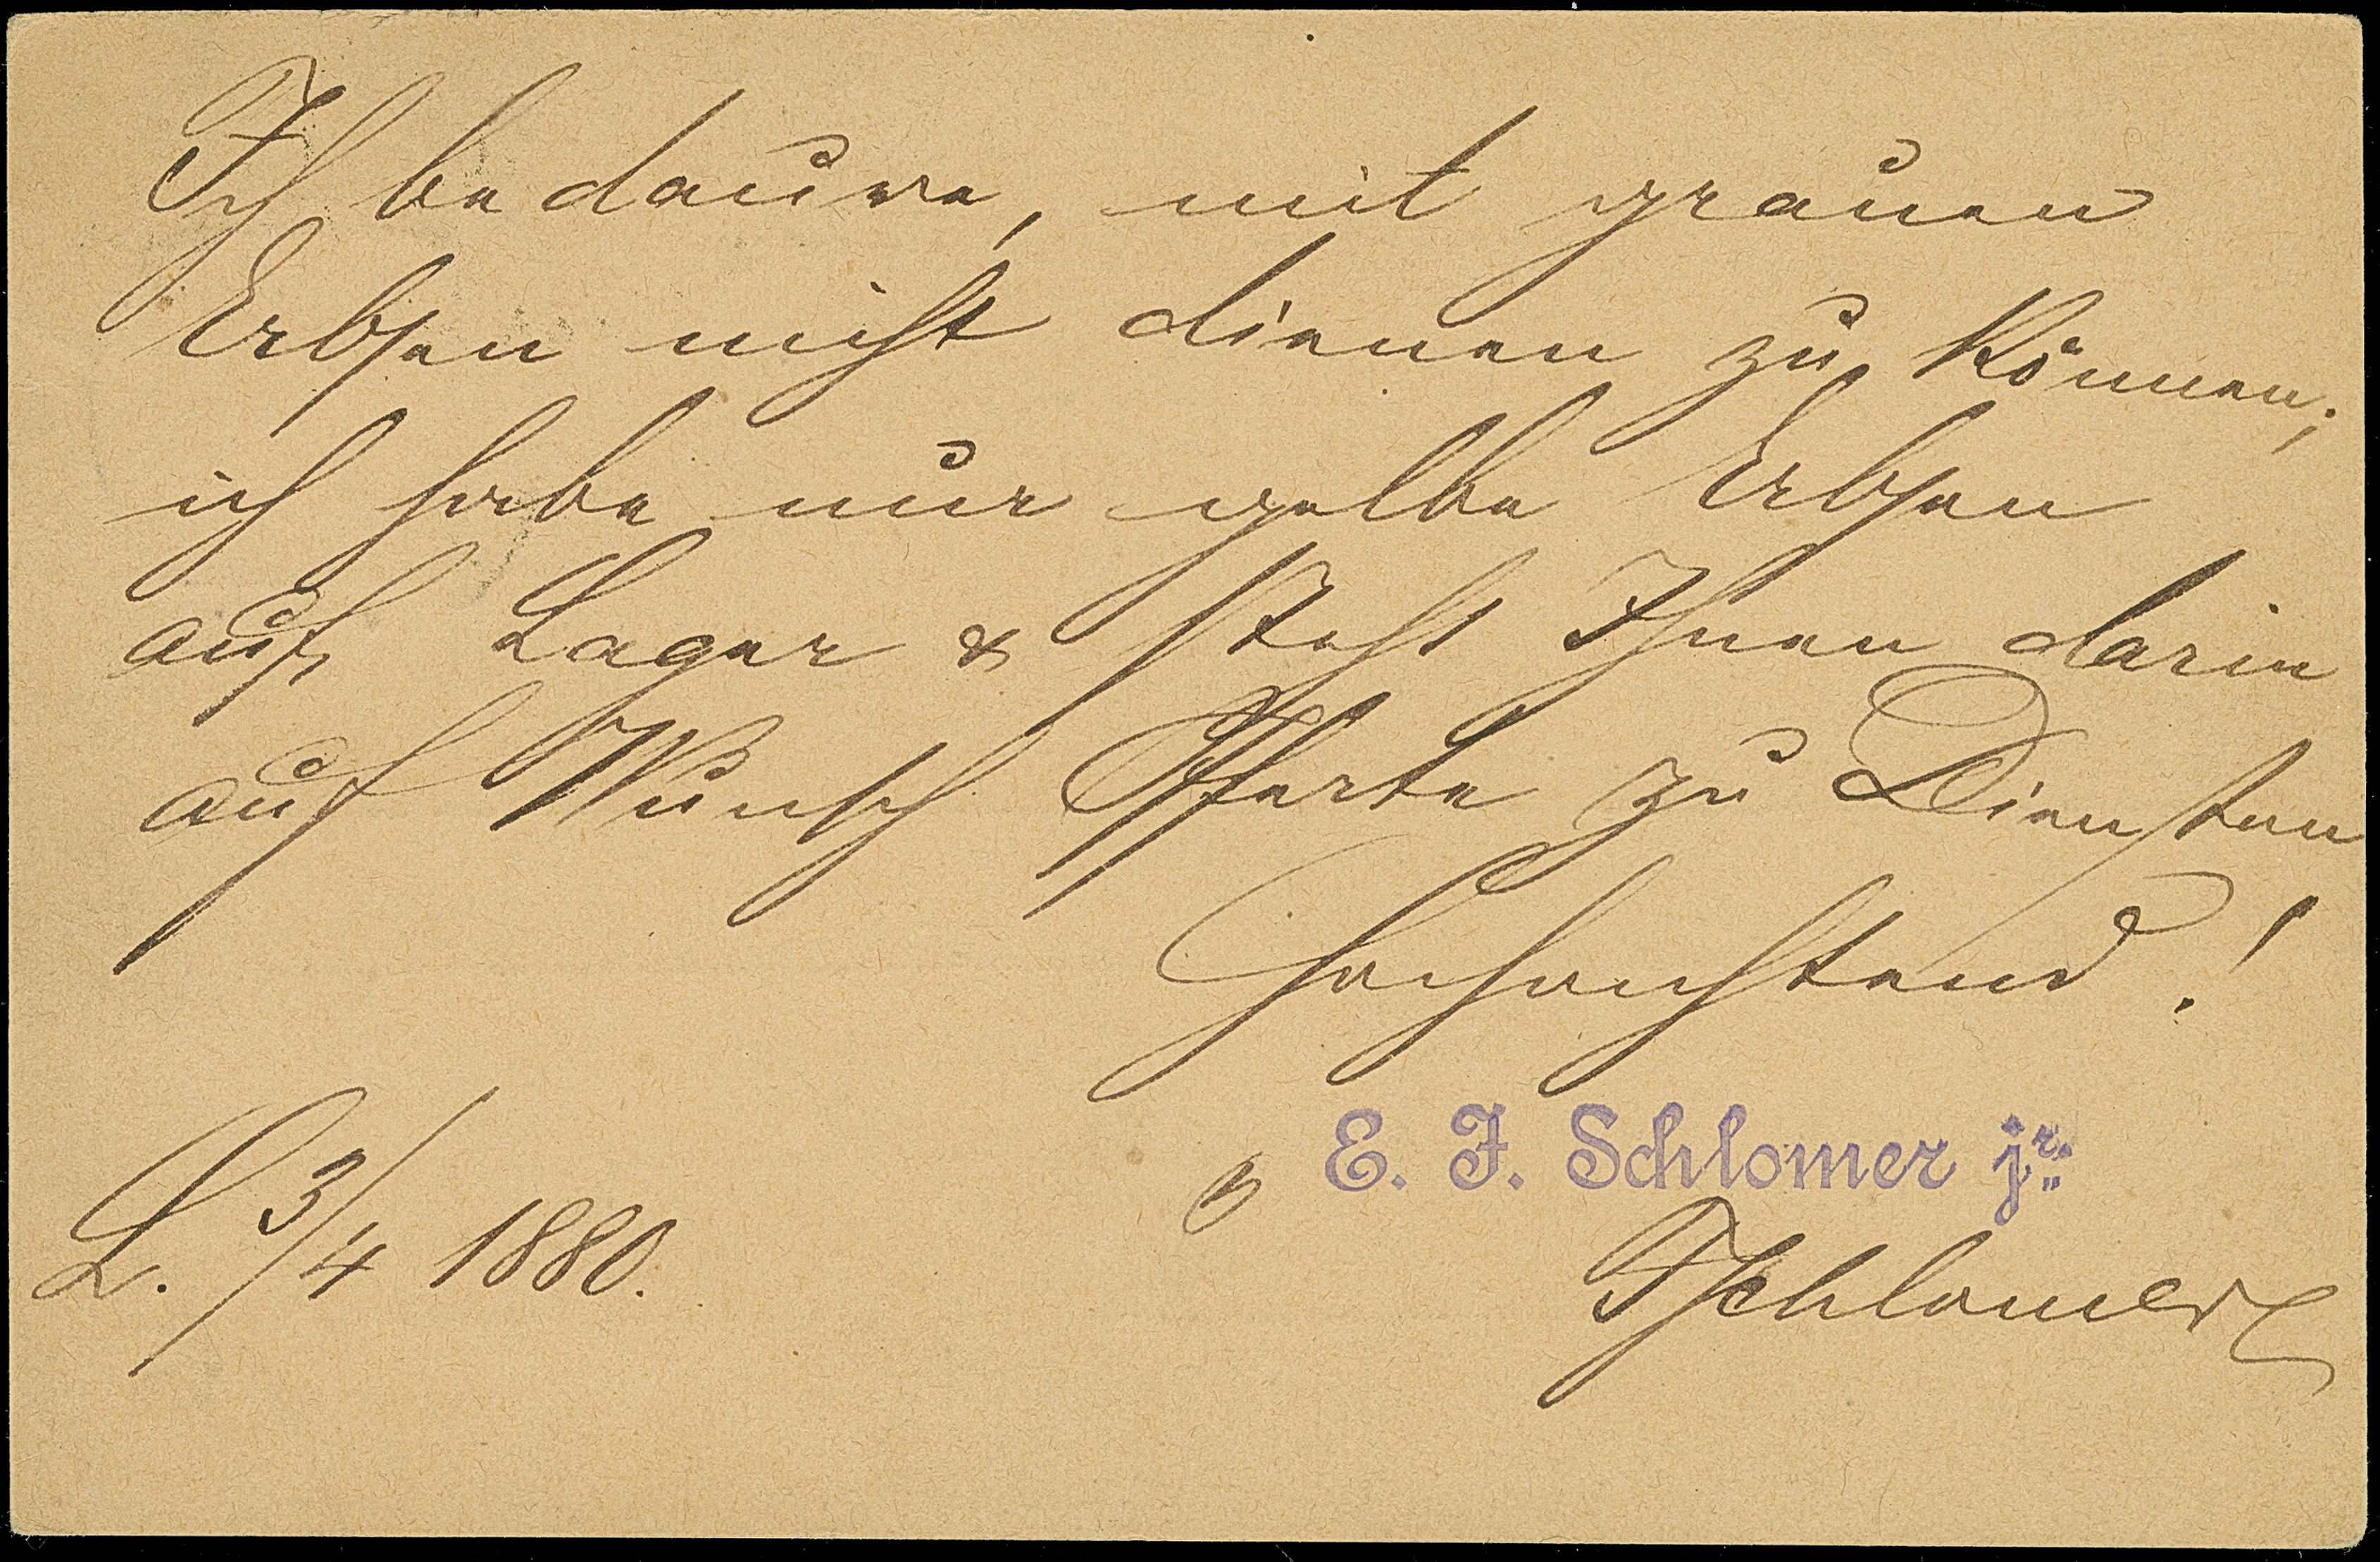 Ich bedaure, mit grauen
Erbsen nicht dienen zu können;
ich habe nur gelbe Erbsen
auf Lager & steht Ihnen darin
auf Wunsch Offerte zu Diensten
Hochachtend!
E. F. Schlomer jr.
L. 3/4 1880.
FSchlomer